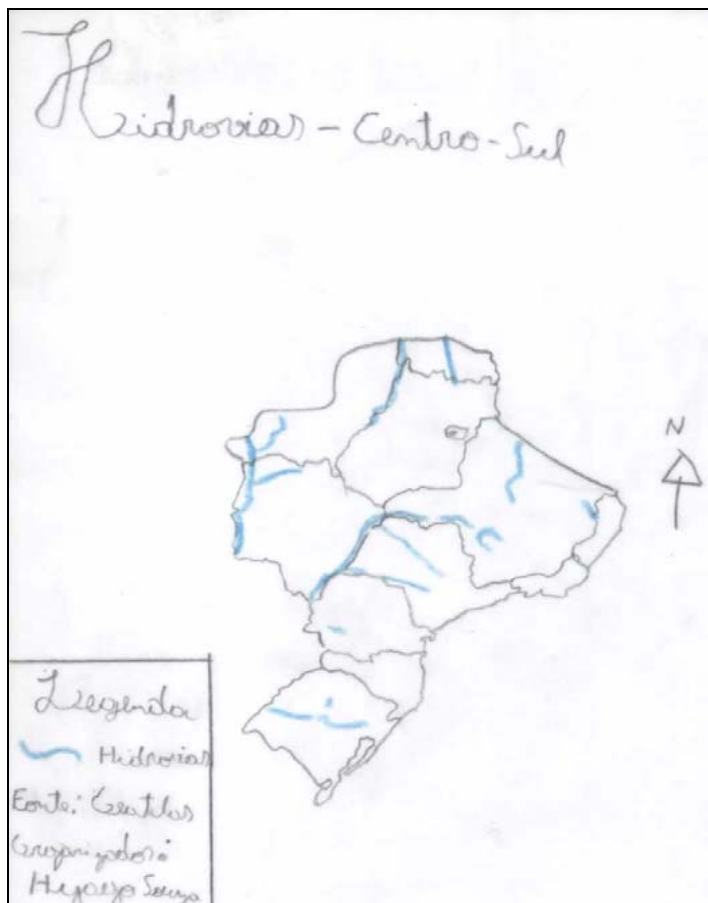 Hidrovias - Centro-Sul
N
Legenda
Hidrovias
Fonte:
Organizador:
Souza